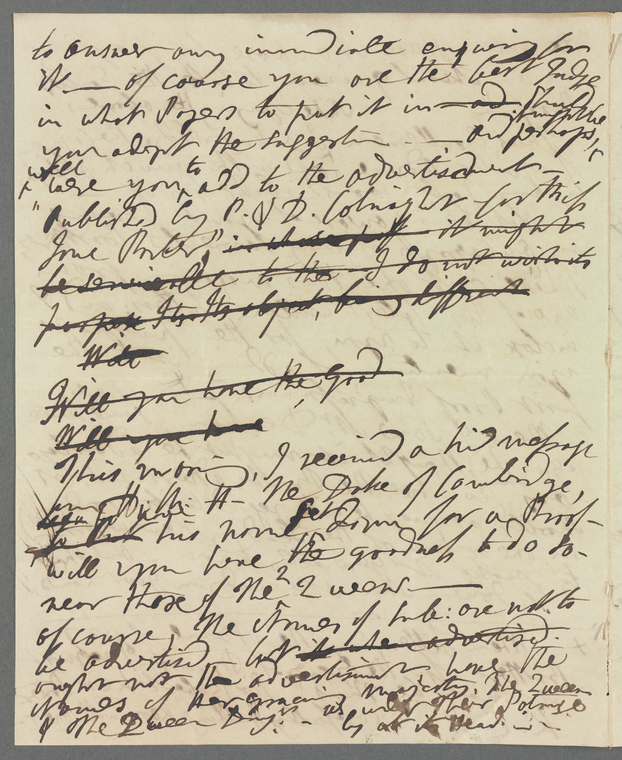 to answer any immediate enquiry for
it — of course you are the best Judge
in what Papers to put it in — and should
you adopt the suggestion — and perhaps,
it might be
will
take you, to add to the advertisement —
"Published by P. & D. Colnaghi for Miss
Jane Porter",
it might
be serviceable to the I do not wish its
its object, being different
Will
Will you have the good
Will you have
This morning, I received a kind message
the Duke of Cambridge,
his name set down for a Proof —
will you have the goodness to do so —
near those of the 2 Queens —
of course, the Names of Sub: are not to
be advertised but advertised.
ought not the advertisement have the
Names of Her gracious Majesty, the Queen
& the Queen Dow: — as under their Patronage
by at its Head. —